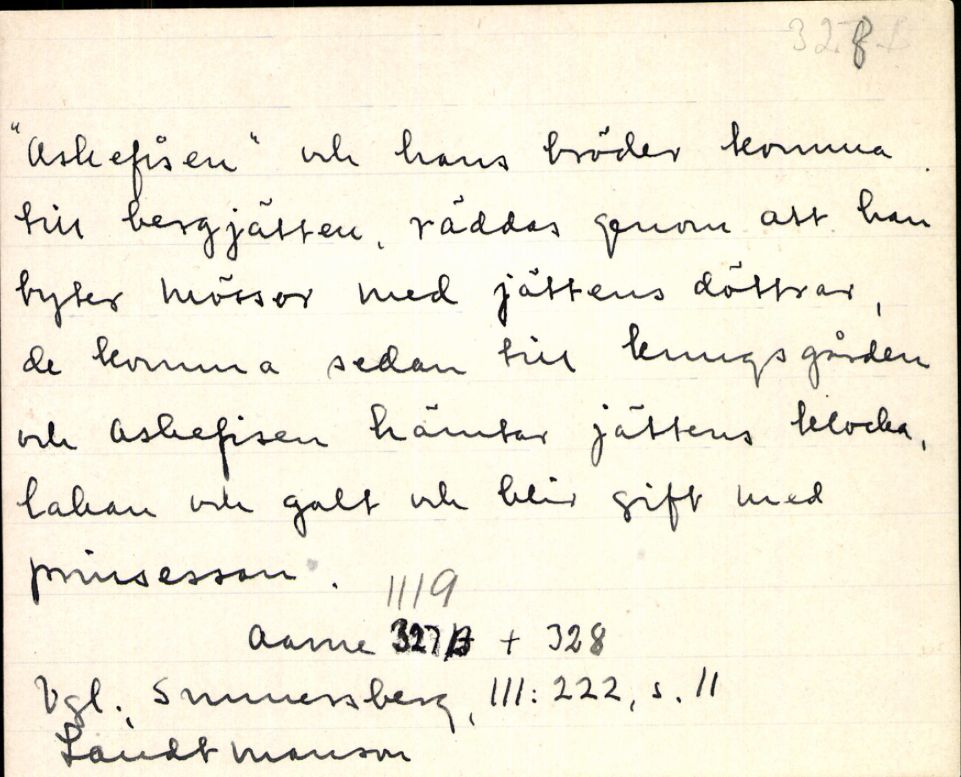 328
"Askefisen" och hans bröder komma
till bergjätten, räddas genom att han
byter mössor med jättens döttrar,
de komma sedan till kungsgården
och Askefisen hämtar jättens klocka,
lakan och galt och blir gift med
prinsessan.
1119
Aarne 327B + 328
Vgl. III: 222, s. 11
Landtmanson